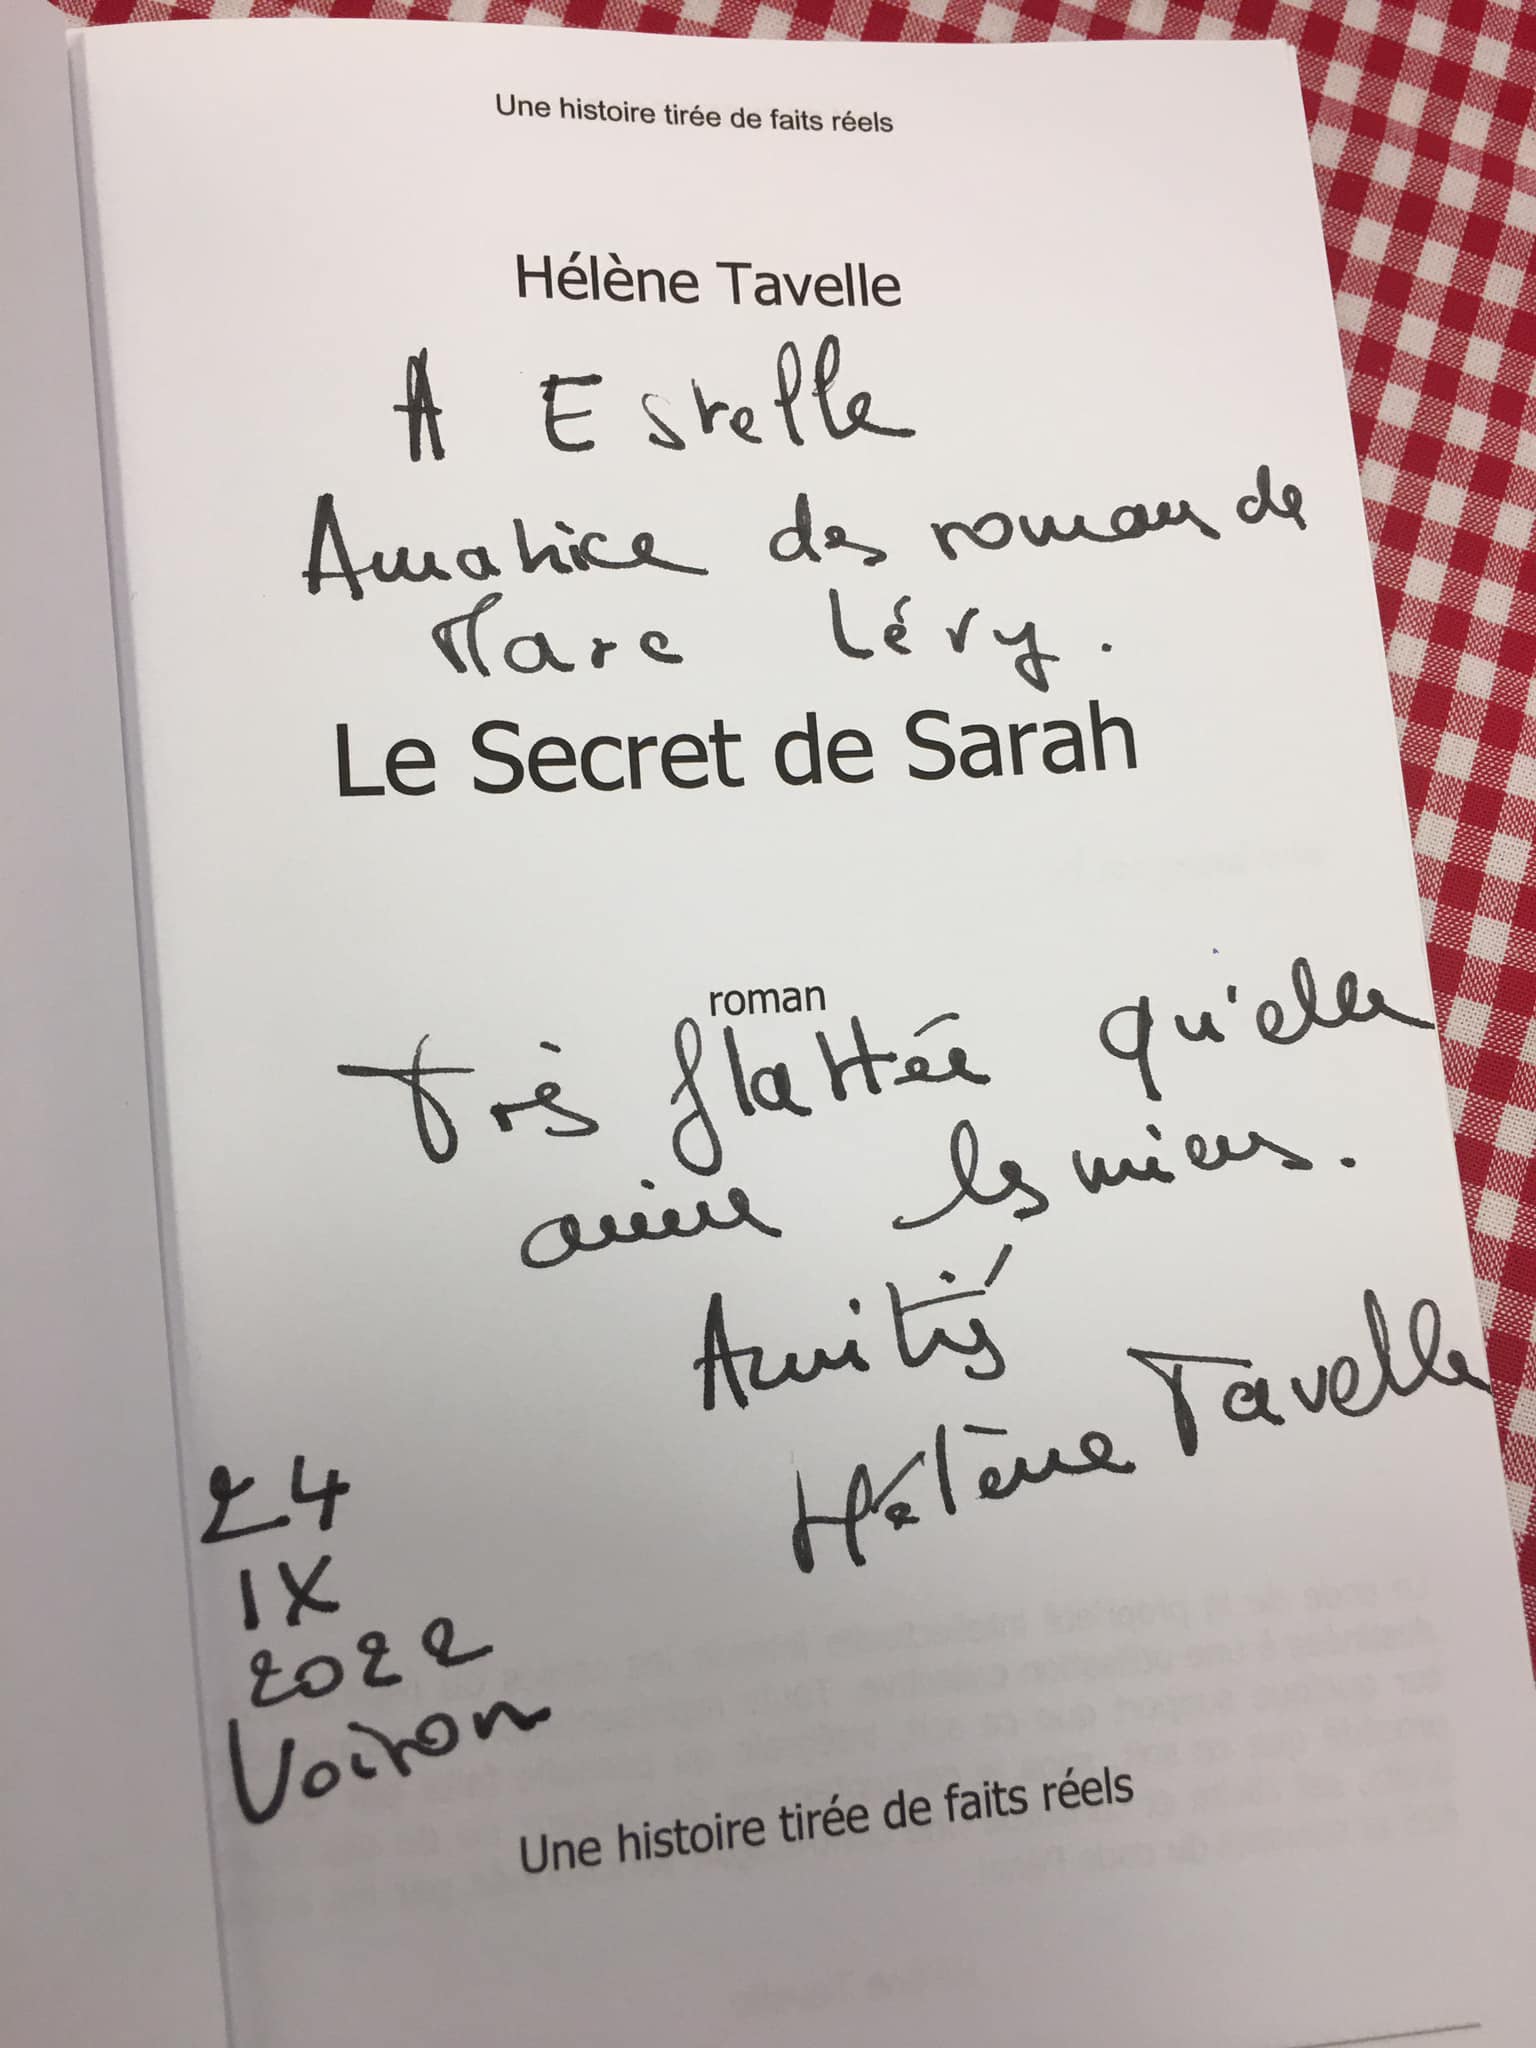 Une histoire tirée de faits réels
Hélène Tavelle
A Estelle
Amatrice des romans de
Marc Lévy.
Le Secret de Sarah
roman
Très flattée qu'elle
aime les miens.
Amitiés
Hélène Tavelle
24
IX
2022
Voiron
Une histoire tirée de faits réels